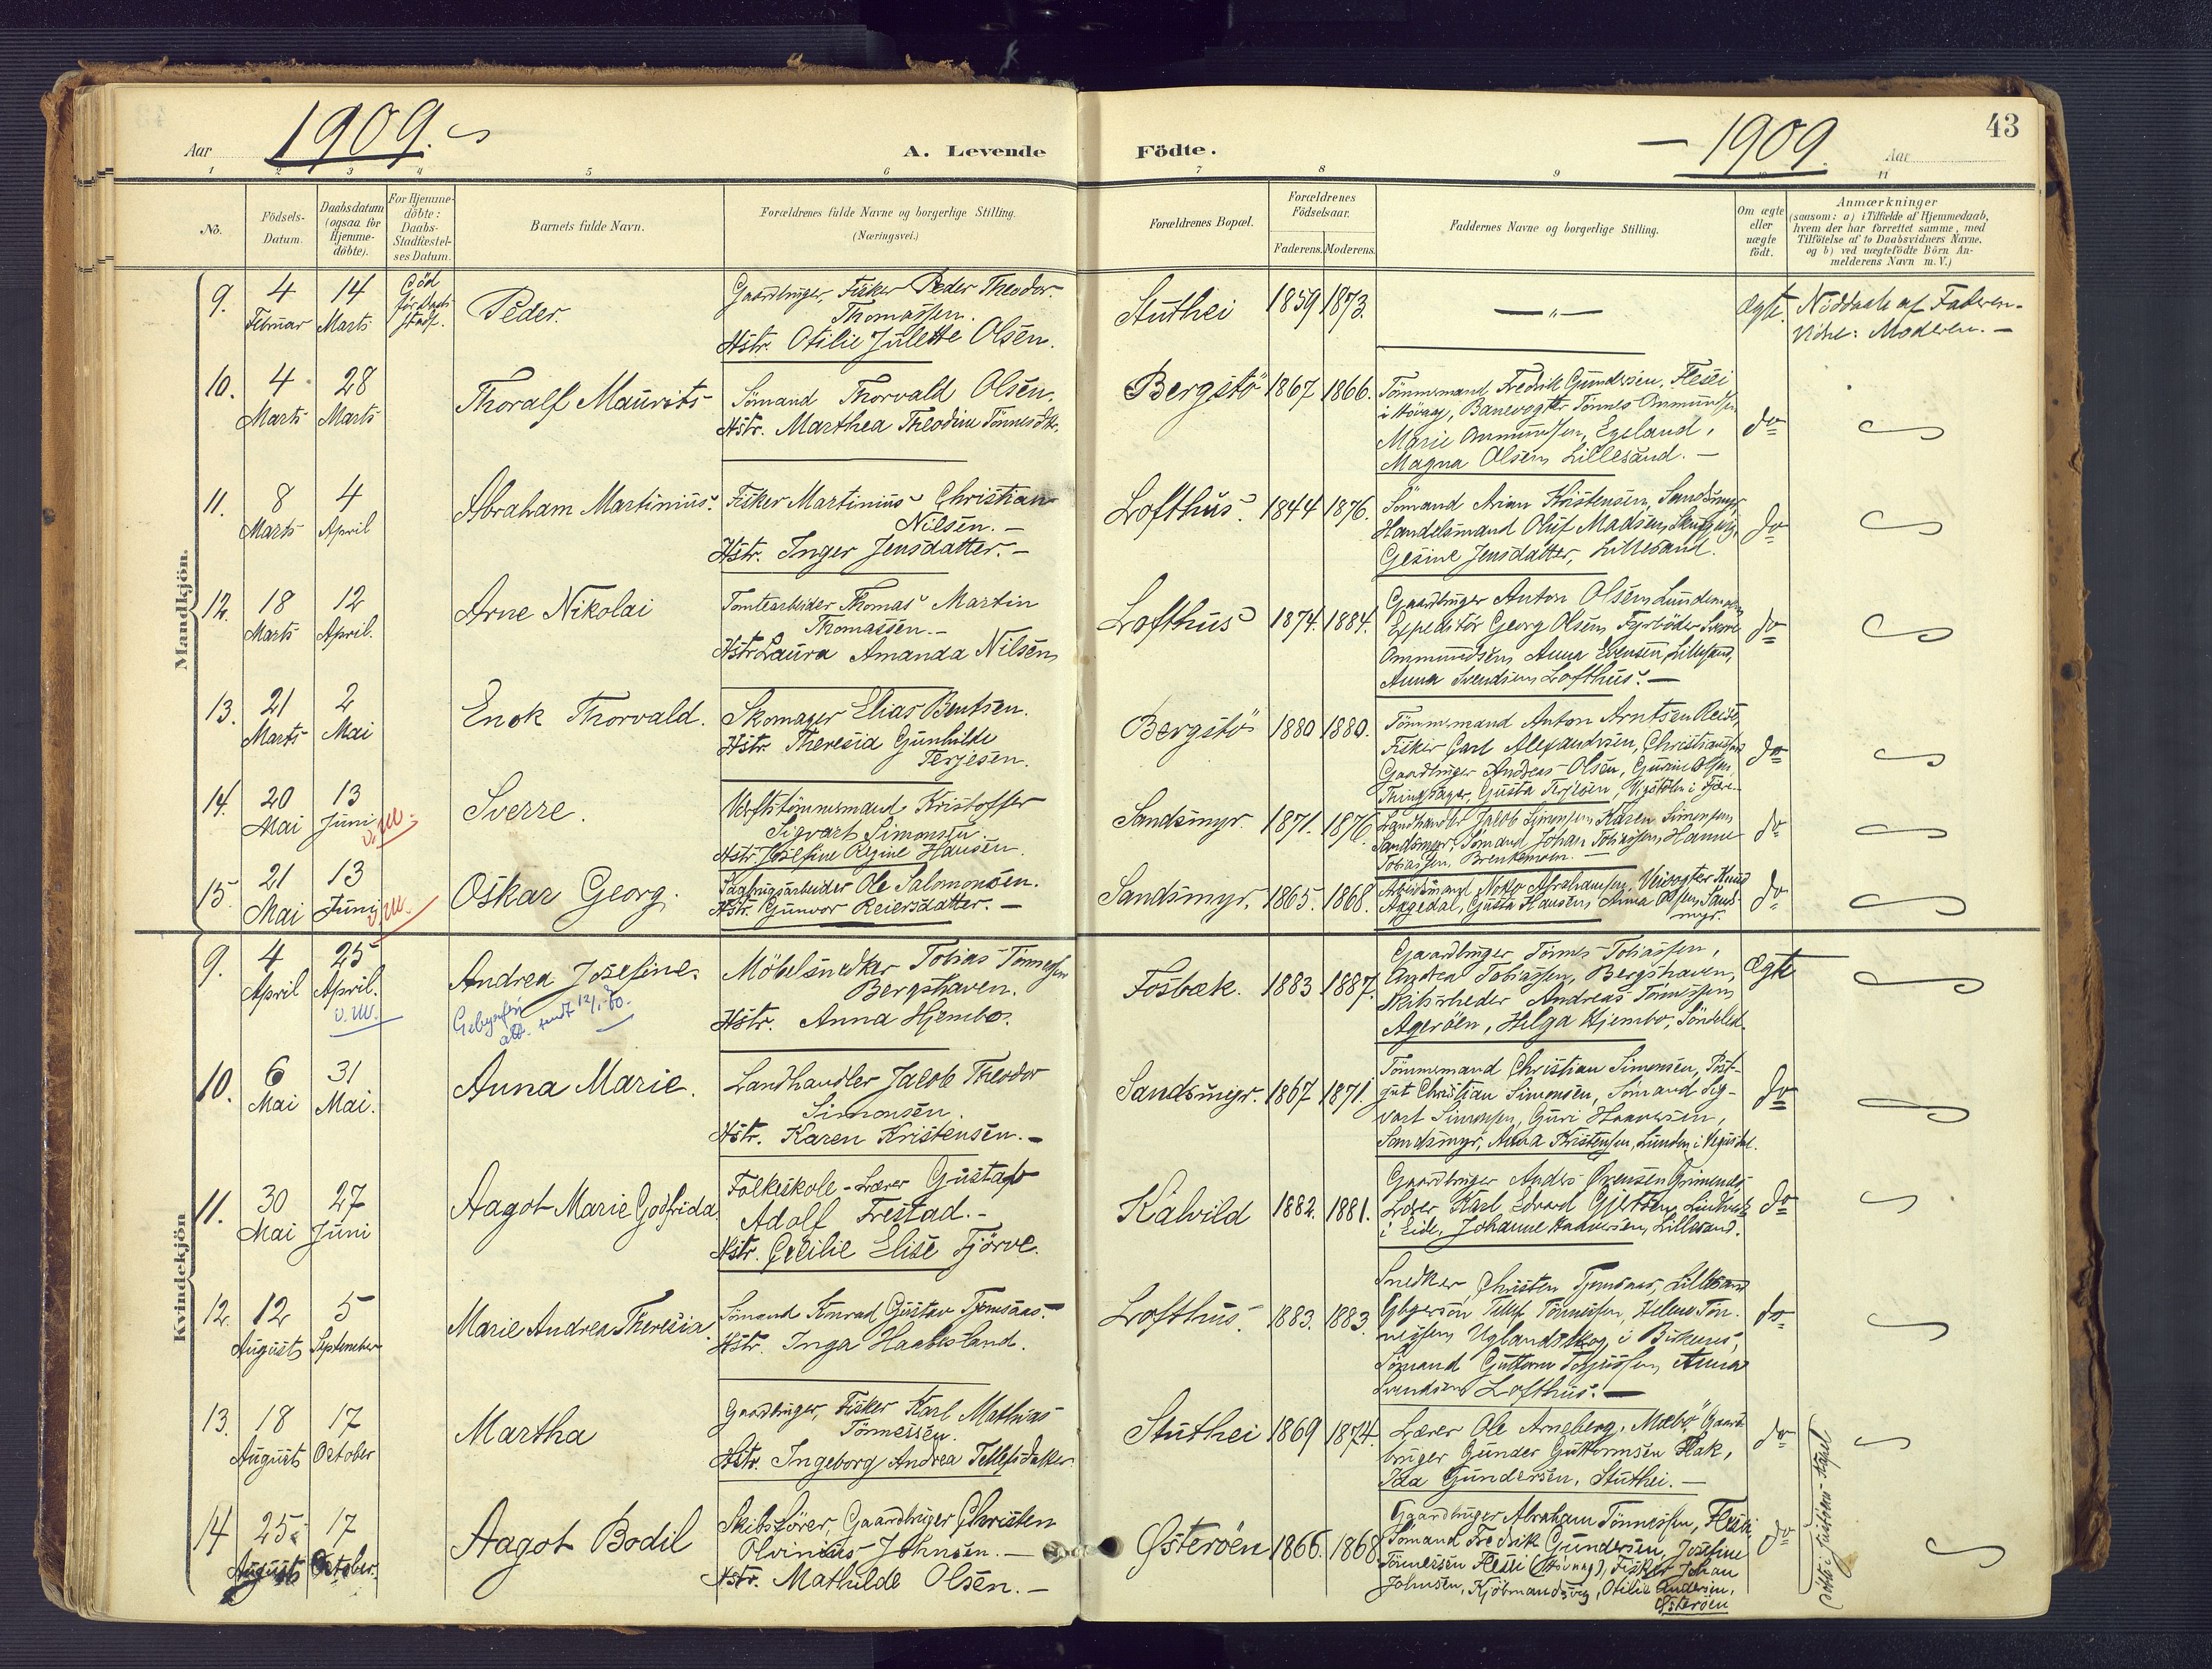 43
Aar 1909.
A. Levende
Födte.
1909. Aar
1 2 3 4 5 6 7 8 9 10 11
No.
Födsels-Datum.
Daabsdatum (ogsaa for Hjemme-döbte).
For Hjemme-döbte: Daabs-Stadfæstel-ses Datum.
Barnets fulde Navn.
Forældrenes fulde Navne og borgerlige Stilling. (Næringsvei.)
Forældrenes Bopæl.
Forældrenes Födselsaar.
Faderens. Moderens.
Faddernes Navne og borgerlige Stilling.
Om ægte eller uægte födt.
Anmærkninger
(saasom: a) i Tilfælde af Hjemmedaab, hvem der har forrettet samme, med Tilföielse af to Daabsvidners Navne, og b) ved uægtefödte Börn An-melderens Navn m. V.)
Mandkjön.
9. 4 Februar 14 Marts Död för Daabs stadf. Peder.
Gaardbruger, Fisker Peder Theodor
Thomassen.
Hstr. Otilie Julette Olsen.
Stuthei 1859 1873. — " — Ægte. Nöddaab af Faderen.
Vidne: Moderen. —
10. 4 Marts 28 Marts Thoralf Maurits
Sömand Thorvald Olsen.
Hstr. Marthea Theodine Tönnesdtr.
Bergstö 1867 1866.
Tömmermand Fredrik Gundersen, Flesei
i Hövag, Banevogter Tönnes Ommundsen
Marie Ommundsen, Egeland,
Magna Olsen, Lillesand. —
do
11. 8 Marts 4 April Abraham Martinius.
Fisker Martinius Christian
Nilsen. —
Hstr. Inger Jensdatter. —
Lofthus. 1844 1876.
Sömand Arian Kristensen, Sandsmyr,
Handelsmand Oluf Madsen,
Gesine Jensdatter, Lillesand.
do
12. 18 Marts 12 April. Arne Nikolai
Tomtearbeider Thomas Martin
Thomassen. —
Hstr. Laura Amanda Nilsen
Lofthus 1874. 1884.
Gaardbruger Anton Olsen
Expeditör Georg Olsen, Fyrböder Sverre
Ommundsen, Anna Evensen, Lillesand,
Anna Svendsen Lofthus. —
do
13. 21 Marts 2 Mai Enok Thorvald.
Skomager Elias Bentsen.
Hstr. Theresia Gunhilde
Terjesen.
Bergstö 1880 1880.
Tömmermand Anton Arntsen
Fisker Carl Alexandersen,
Gaardbruger Andreas Olsen,
Gusta Terjesen,
do
14. 20 Mai 13 Juni v.M. Sverre.
Verftstömmermand Kristoffer
Sigvart Simonsen.
Hstr. Josefine Regine Hansen.
Sandsmyr. 1871. 1876.
Landhandler Jacob Simonsen, Karen Simonsen
Sandsmyr, Sömand Johan Tobiassen, Hanne
Tobiassen, Brekkemoen. —
do
15. 21 Mai 13 Juni v.M. Oskar Georg.
Sagbrugsarbeider Ole Salomonsen.
Hstr. Gunvor Reiersdatter. —
Sandsmyr. 1865. 1868.
Abrahamsen, Veivogter Knud
Aagedal, Gusta Hansen, Anna Olsen, Sands-
myr.
do
Kvindekjön
9. 4 April 25 April. v.M. Andrea Josefine.
att. sendt
Möbelsnedker Tobias Tönnessen
Bergshaven.
Hstr. Anna Hjembo.
Fosbæk. 1883 1887.
Gaardbruger Tönnes Tobiassen,
Andrea Tobiassen, Bergshaven,
Skibsrheder Andreas Tönnessen,
Ageröen, Helga Hjembo, Söndeled.
Ægte
10. 6 Mai 31 Mai. Anna Marie.
Landhandler Jacob Theodor
Simonsen.
Hstr. Karen Kristensen. —
Sandsmyr. 1867 1871.
Tömmermand Christian Simonsen, Post-
gut Christian Simonsen, Sömand Sig-
vart Simonsen, Guri Haaversen,
Sandsmyr, Anna Kristensen, Lunden i Vegusdal.
do
11. 30 Mai 27 Juni Aagot Marie Godfrida
Folkeskole-Lærer Gustav
Adolf Frestad. —
Hstr. Cecilie Elise Fjörve.
Kalvild 1882. 1881.
Gaardbruger Anders Evensen
Lærer Karl Edvard Gjertsen,
i Eide, Johanne Haaversen, Lillesand.
do
12. 12 August 5 September Marie Andrea Theresia.
Sömand Konrad Gustav Tjomsaas. —
Hstr. Inga Haabesland.
Lofthus. 1883. 1883.
Snedker Christen Tjomsaas, Lillesand
Tellef Tönnessen, Helene Tön-
nessen, Uglandskog i Birkenes,
Sömand Guttorm Terjussen, Anna
Svendsen Lofthus. —
do
13. 18 August 17 October Martha
Gaardbruger, Fisker Karl Mathias
Tönnessen.
Hstr. Ingeborg Andrea Tellefsdatter.
Stuthei 1869 1874.
Lærer Ole Arneberg, Mæbö, Gaard-
bruger Gunder Guttormsen Flak,
Ida Gundersen, Stuthei. —
do
14 25 August 17 October. Aagot Bodil
Skibsförer, Gaardbruger Christen
Olvinius Johnsen. —
Hstr. Mathilde Olsen. —
Österöen 1866. 1868
Gaardbruger Abraham Tönnessen, Flesei,
Sömand Fredrik Gundersen, Josefine
Tönnessen Flesei (Hövag), Fisker Johan
Johnsen, Kjöbmandsvig, Otilie Andersen,
Österöen
do
Döbt i Justöens Kapel